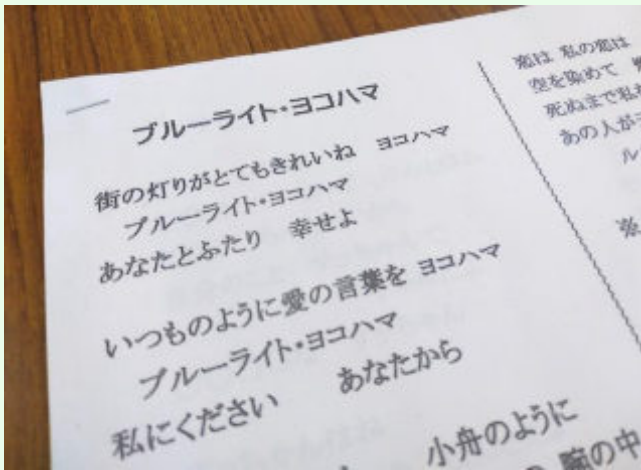 ブルーライト・ヨコハマ
街の灯りがとてもきれいね ヨコハマ
ブルーライト・ヨコハマ
あなたとふたり 幸せよ
いつものように愛の言葉を ヨコハマ
ブルーライト・ヨコハマ
私にください あなたから
小舟のように
腕の中
恋は 私の恋は
空を染めて
死ぬまで私
あの人が
ル
※